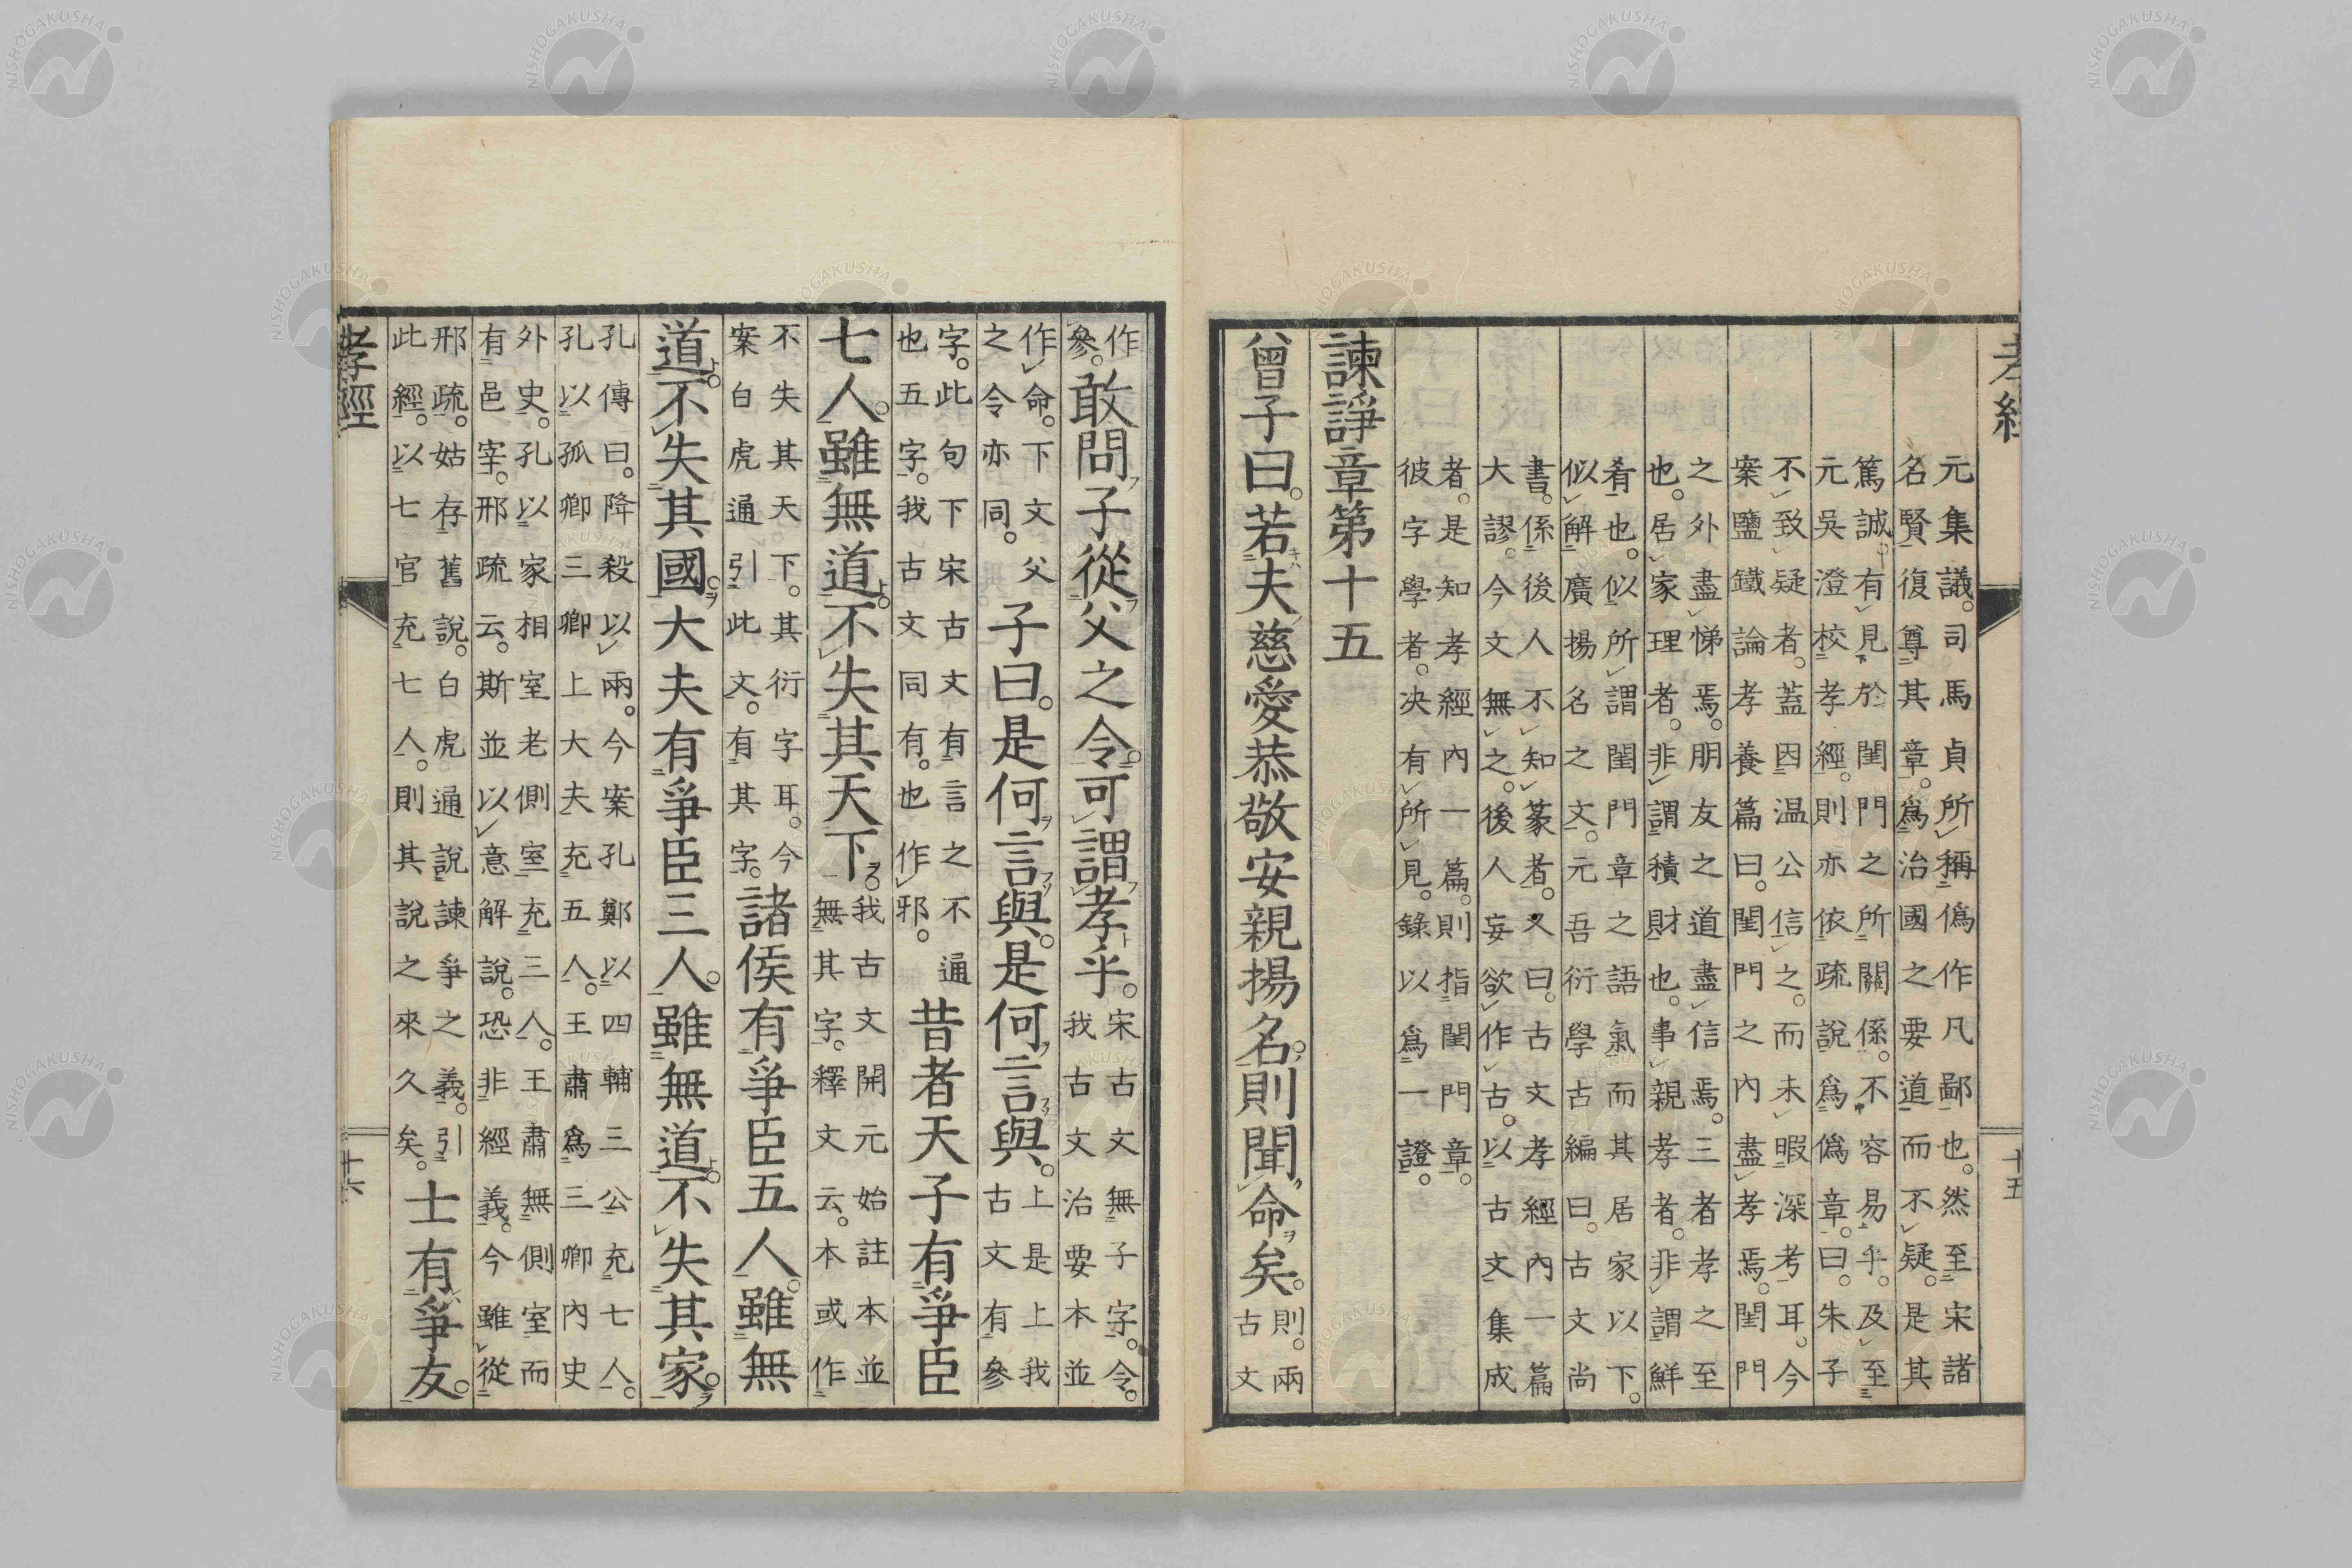 孝經
十五
元集議。司馬貞所稱僞作凡鄙也。然至宋諸
名賢復尊其章。爲治國之要道而不疑。是其
篤誠有見於閨門之所關係。不容易乎。及至
元吳澄校孝經。則亦依疏說爲僞章。曰朱子
不致疑者。蓋因温公信之。而未暇深考耳。今
案鹽鐵論孝養篇曰。閨門之內盡孝焉。閨門
之外盡悌焉。朋友之道盡信焉。三者孝之至
也。居家理者。非謂積財也。事親孝者。非謂鮮
肴也。似所謂閨門章之語氣而其居家以下。
似解廣揚名之文。元吾衍學古編曰。古文尚
書。係後人不知篆者。又曰。古文孝經內一篇
大謬。今文無之。後人妄欲作古。以古文集成
者。是知孝經內一篇。則指閨門章。
彼字學者。决有所見。錄以爲一證。
諫諍章第十五
曾子曰。若夫慈愛恭敬安親揚名。則聞命矣。則。兩
古文
作
參。敢問子從父之令。可謂孝乎。宋古文無子字。令。
我古文治要本並
作命。下文父
之令亦同。子曰。是何言與。是何言與。上是上我
古文有參
字。此句下宋古文有言之不通
也五字。我古文同有。也作邪。昔者天子有爭臣
七人。雖無道。不失其天下。我古文開元始註本並
無其字。釋文云。本或作
不失其天下。其衍字耳。今
案白虎通引此文。有其字。諸侯有爭臣五人。雖無
道。不失其國。大夫有爭臣三人。雖無道。不失其家。
孔傳曰。降殺以兩。今案孔鄭以四輔三公充七人。
孔以孤卿三卿上大夫充五人。王肅爲三卿內史
外史。孔以家相室老側室充三人。王肅無側室而
有邑宰。邢疏云。斯並以意解說。恐非經義。今雖從
邢疏。姑存舊說。白虎通說諫爭之義。引
此經。以七官充七人。則其說之來久矣。士有爭友。
孝經
十六